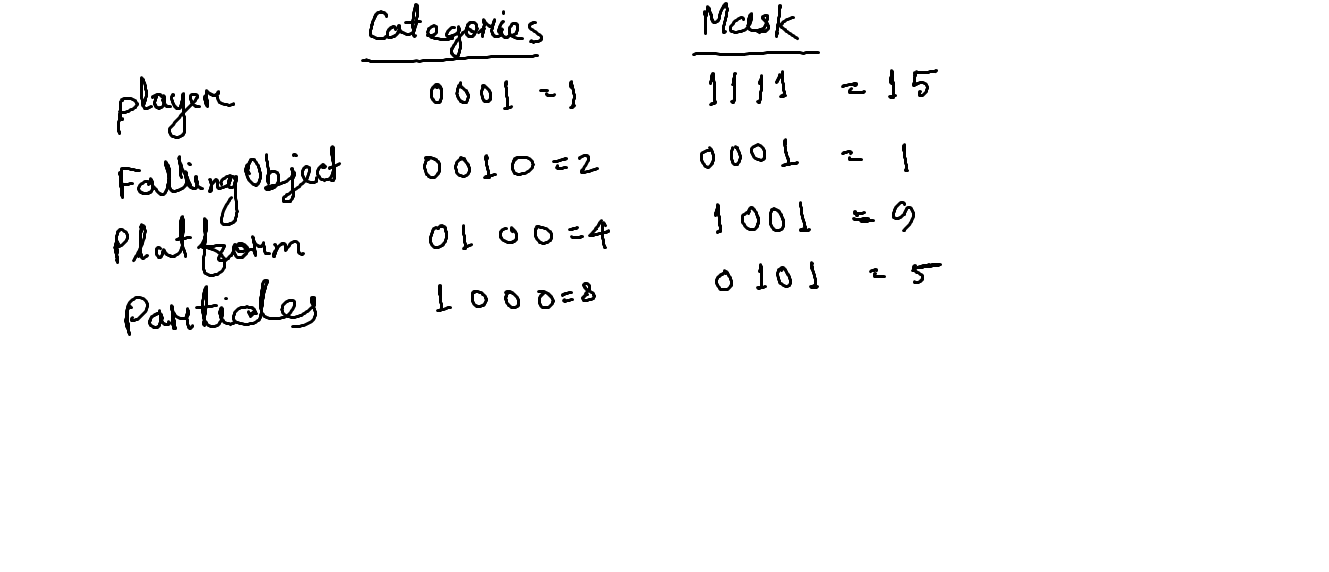 Categories Mask
player 0001 = 1 1111 = 15
Falling Object 0010 = 2 0001 = 1
Platform 0100 = 4 1001 = 9
Particles 1000 = 8 0101 = 5